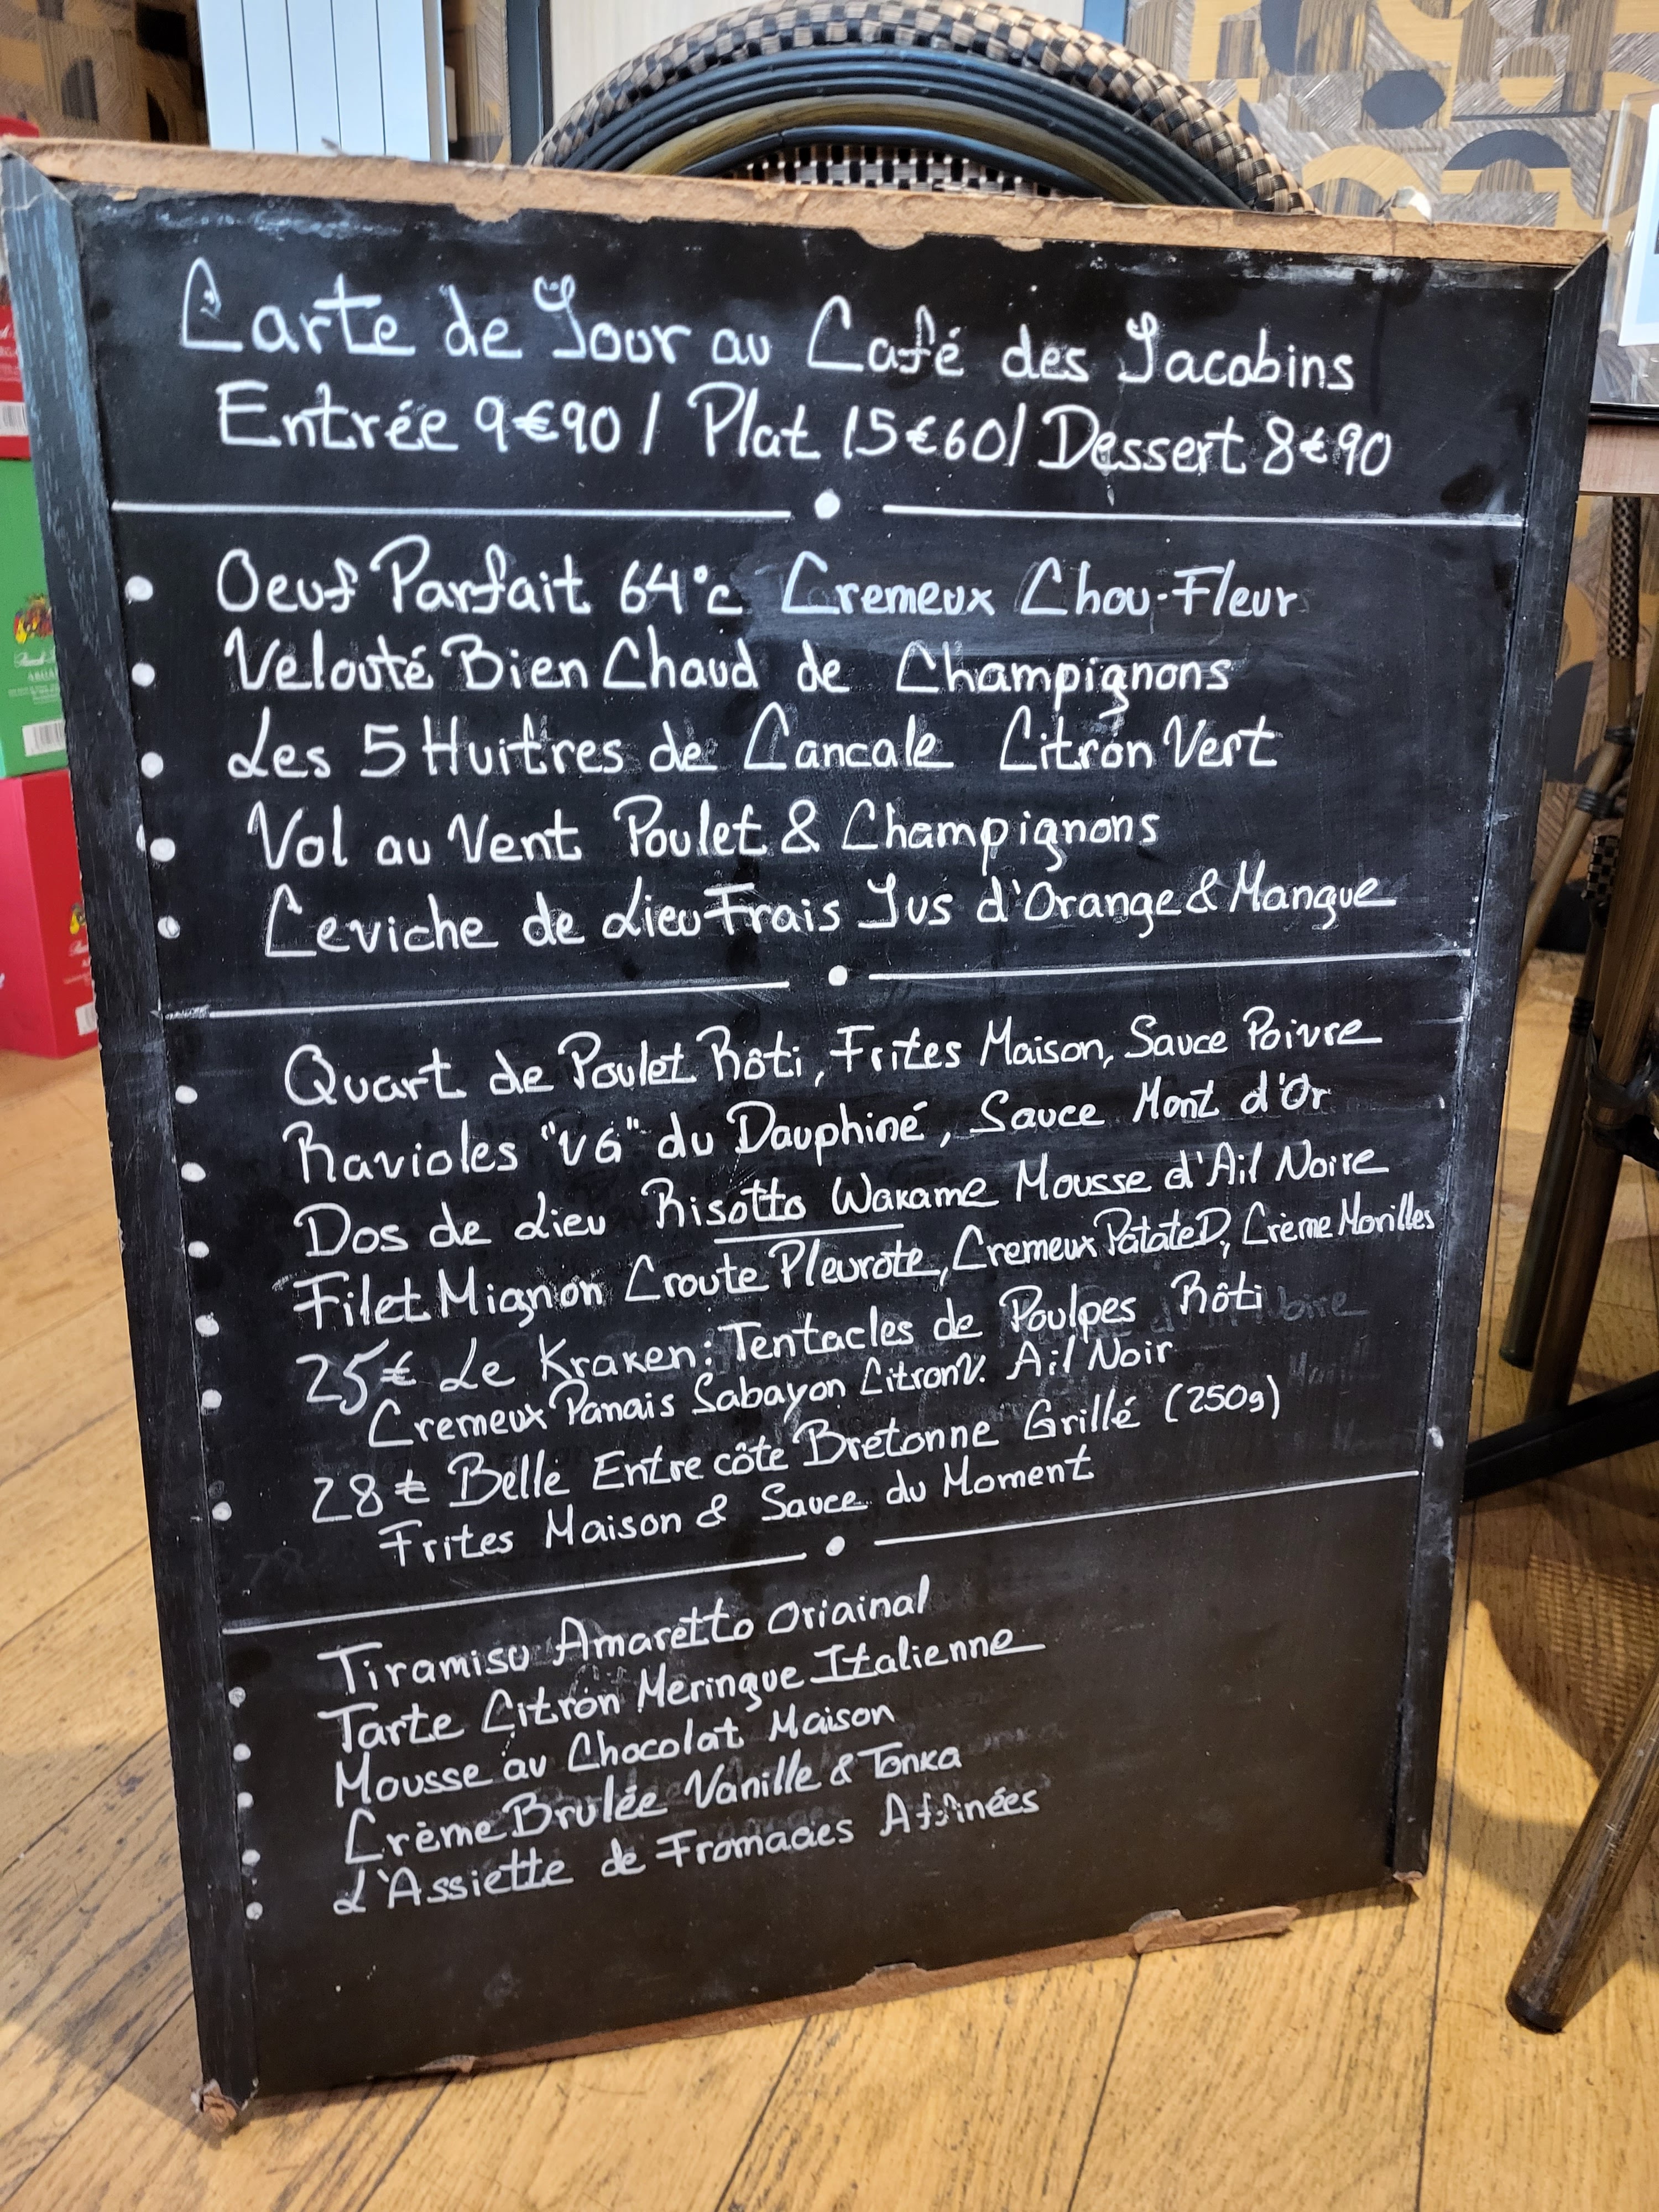 Carte de Jour au Café des Jacobins
Entrée 9€90 / Plat 15€60 / Dessert 8€90
Oeuf Parfait 64°c Cremeux Chou-Fleur
Velouté Bien Chaud de Champignons
Les 5 Huitres de Cancale Citron Vert
Vol au Vent Poulet & Champignons
Ceviche de Lieu Frais Jus d'Orange & Mangue
Quart de Poulet Rôti, Frites Maison, Sauce Poivre
Ravioles "VG" du Dauphiné, Sauce Mont d'Or
Dos de Lieu Risotto Wakame Mousse d'Ail Noire
Filet Mignon Croute Pleurote, Cremeux Patate D, Crème Morilles
25€ Le Kraken: Tentacles de Poulpes Rôti
Cremeux Panais Sabayon Citron V. Ail Noir
28€ Belle Entrecôte Bretonne Grillé (250g)
Frites Maison & Sauce du Moment
Tiramisu Amaretto Original
Tarte Citron Meringue Italienne
Mousse au Chocolat Maison
Crème Brulée Vanille & Tonka
L'Assiette de Fromages Affinées